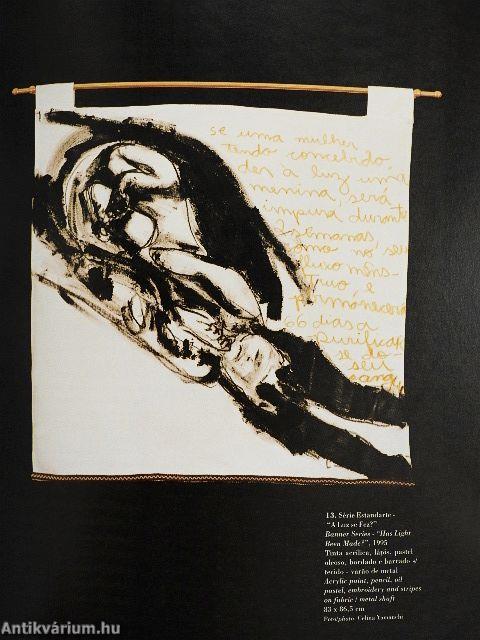 se uma mulher
tendo concebido
der à luz uma
menina, será
impura durante
2 semanas,
como no seu
fluxo mens-
truo e
permanecerá
66 dias a
purificar
se do
seu
sangue
13. Série Estandarte -
"A Luz se Fez?"
Banner Series - "Has Light
Been Made?", 1995
Tinta acrílica, lápis, pastel
oleoso, bordado e barrado s/
tecido - varão de metal
Acrylic paint, pencil, oil
pastel, embroidery and stripes
on fabric / metal shaft
83 x 86,5 cm
Foto/photo: Celina
Antikvárium.hu